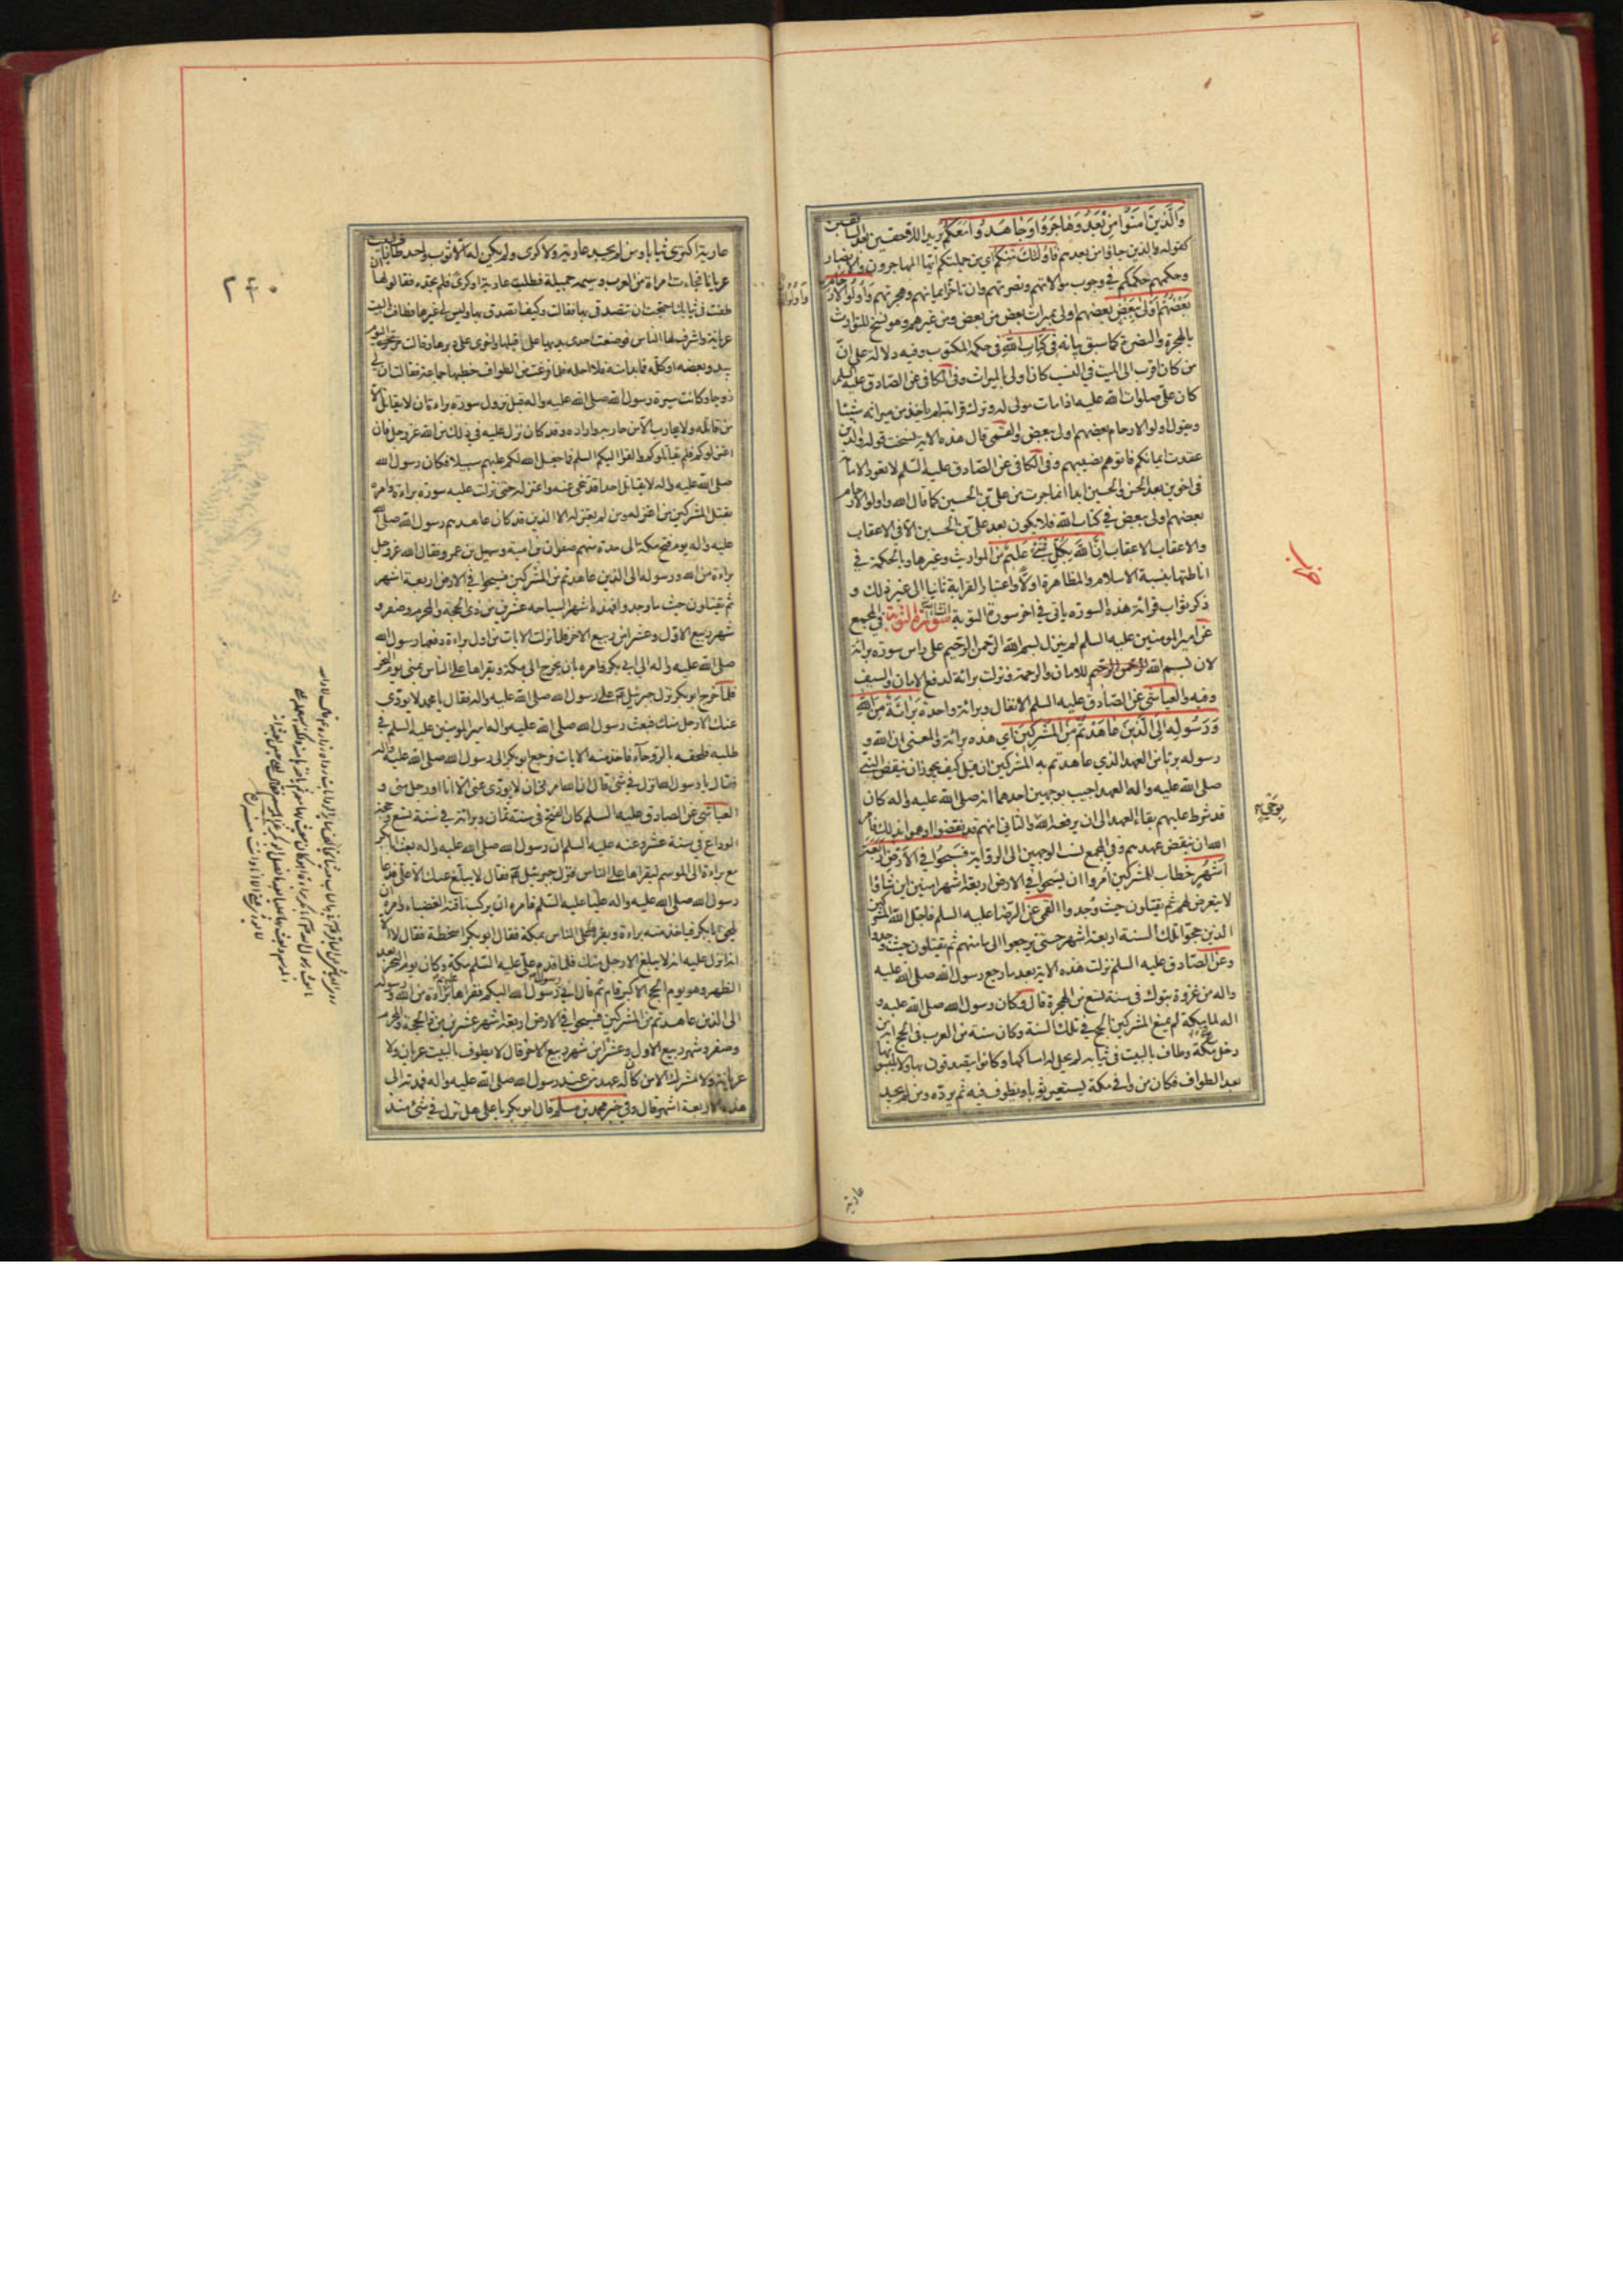 وَالَّذِينَ آمَنُوا مِنْ بَعْدُ وَهَاجَرُوا وَجَاهَدُوا مَعَكُمْ يريد اللاحقين بعد السابقين
كقوله والذين جاؤا من بعدهم فَأُولَئِكَ مِنْكُمْ اي من جملتكم ايها المهاجرون والانصار
وحكمهم حكمكم في وجوب موالاتهم ونصرتهم وان تاخر ايمانهم وهجرتهم وَأُولُو الْأَرْحَامِ
بَعْضُهُمْ أَوْلَى بِبَعْضٍ بعضهم اولى بميراث بعض من بعض ومن غيرهم وهو نسخ للتوارث
بالهجرة والنصرة كما سبق بيانه فِي كِتَابِ اللَّهِ في حكمه المكتوب وفيه دلالة على ان
من كان اقرب الى الميت في النسب كان اولى بالميراث وفي الكافي عن الصادق عليه السلم
كان علي صلوات الله عليه اذا مات مولى له وترك قرابته لم ياخذ من ميراثه شيئا
ويقول اولو الارحام بعضهم اولى ببعض والقمي قال هذه الاية نسخت قوله والذين
عقدت ايمانكم فاتوهم نصيبهم وفي الكافي عن الصادق عليه السلم لا تعود الامامة
في اخوين بعد الحسن والحسين ابدا انما جرت من علي بن الحسين كما قال الله واولو الارحام
بعضهم اولى ببعض في كتاب الله فلا يكون بعد علي بن الحسين الا في الاعقاب
والاعقاب الاعقاب إِنَّ اللَّهَ بِكُلِّ شَيْءٍ عَلِيمٌ من المواريث وغيرها والحكمة في
اناطتها بنسبة الاسلام والمظاهرة اولا واعتبار القرابة ثانيا الى غير ذلك و
ذكر ثواب قرائة هذه السورة ياتي في اخر سورة التوبة سورة التوبة في المجمع
عن امير المومنين عليه السلم لم ينزل بسم الله الرحمن الرحيم على راس سورة برائة
لان بسم الله الرحمن الرحيم للامان والرحمة ونزلت برائة لدفع الامان والسيف
وفيه والعياشي عن الصادق عليه السلم الانفال وبرائة واحدة بَرَاءَةٌ مِنَ اللَّهِ
وَرَسُولِهِ إِلَى الَّذِينَ عَاهَدْتُمْ مِنَ الْمُشْرِكِينَ اي هذه برائة والمعنى ان الله و
رسوله بريئان من العهد الذي عاهدتم به المشركين ان قيل كيف يجوز ان ينقض النبي
صلى الله عليه واله العهد اجيب بوجهين احدهما انه صلى الله عليه واله كان
قد شرط عليهم بقاء العهد الى ان يرفعه الله والثاني انهم قد نقضوا او هموا بذلك فامره
الله ان ينقض عهدهم وفي المجمع نسب الوجهين الى الرواية فَسِيحُوا فِي الْأَرْضِ أَرْبَعَةَ
أَشْهُرٍ خطاب للمشركين امروا ان يسيحوا في الارض اربعة اشهر امنين اين شاؤا
لا يتعرض لهم ثم يقتلون حيث وجدوا القمي عن الرضا عليه السلم فاجل الله المشركين
الذين حجوا تلك السنة اربعة اشهر حتى يرجعوا الى مامنهم ثم يقتلون حيث وجدوا
وعن الصادق عليه السلم نزلت هذه الاية بعد ما رجع رسول الله صلى الله عليه
واله من غزوة تبوك في سنة تسع من الهجرة قال وكان رسول الله صلى الله عليه و
اله لما فتح مكة لم يمنع المشركين الحج في تلك السنة وكان سنة من العرب في الحج انه من
دخل مكة وطاف بالبيت في ثيابه لم يحل له امساكها وكانوا يتصدقون بها ولا يلبسونها
بعد الطواف فكان من وافى مكة يستعير ثوبا ويطوف فيه ثم يرده ومن لم يجد
عارية
٢٤٠
عارية اكترى ثيابا ومن لم يجد عارية ولا كرى ولم يكن له الا ثوب واحد طاف بالبيت
عريانا فجاءت امراة من العرب وسيمة جميلة فطلبت عارية او كرى فلم تجده فقالوا لها ان
طفت في ثيابك احتجت ان تتصدقي بها فقالت وكيف اتصدق بها وليس لي غيرها فطافت بالبيت
عريانة واشرف لها الناس فوضعت احدى يديها على قبلها والاخرى على دبرها وقالت مرتجزة اليوم
يبدو بعضه او كله فما بدا منه فلا احله فلما فرغت من الطواف خطبها جماعة فقالت ان لي
زوجا وكانت سيرة رسول الله صلى الله عليه واله قبل نزول سورة براءة ان لا يقاتل الا
من قاتله ولا يحارب الا من حاربه واراده وقد كان نزل عليه في ذلك من الله عز وجل فان
اعتزلوكم فلم يقاتلوكم والقوا اليكم السلم فما جعل الله لكم عليهم سبيلا فكان رسول الله
صلى الله عليه واله لا يقاتل احدا قد تنحى عنه واعتزله حتى نزلت عليه سورة براءة وامره
بقتل المشركين من اعتزله ومن لم يعتزله الا الذين قد كان عاهدهم رسول الله صلى الله
عليه واله يوم فتح مكة الى مدة منهم صفوان بن امية وسهيل بن عمرو فقال الله عز وجل
براءة من الله ورسوله الى الذين عاهدتم من المشركين فسيحوا في الارض اربعة اشهر
ثم يقتلون حيث ما وجدوا فهذه اشهر السياحة عشرين من ذي الحجة والمحرم وصفر و
شهر ربيع الاول وعشرا من ربيع الاخر فلما نزلت الايات من اول براءة دفعها رسول الله
صلى الله عليه واله الى ابي بكر وامره بان يخرج الى مكة ويقراها على الناس بمنى يوم النحر
فلما خرج ابو بكر نزل جبرئيل على رسول الله صلى الله عليه واله فقال يا محمد لا يودي
عنك الا رجل منك فبعث رسول الله صلى الله عليه واله امير المومنين عليه السلم في
طلبه فلحقه بالروحاء فاخذ منه الايات فرجع ابو بكر الى رسول الله صلى الله عليه واله
فقال يا رسول الله انزل في شئ قال ان الله امرني ان لا يودي عني الا انا او رجل مني و
العياشي عن الصادق عليه السلم كان الفتح في سنة ثمان وبرائة في سنة تسع وحجة
الوداع في سنة عشر وعنه عليه السلم ان رسول الله صلى الله عليه واله بعث ابا بكر
مع براءة الى الموسم ليقراها على الناس فنزل جبرئيل فقال لا يبلغ عنك الا علي فدعا
رسول الله صلى الله عليه واله عليا عليه السلم فامره ان يركب ناقته العضباء وامره ان
يلحق ابا بكر فياخذ منه براءة ويقراه على الناس بمكة فقال ابو بكر اسخطة فقال لا الا
انه انزل عليه انه لا يبلغ الا رجل منك فلما قدم علي عليه السلم مكة وكان يوم النحر بعد
الظهر وهو يوم الحج الاكبر قام ثم قال اني رسول رسول الله اليكم فقراها براءة من الله ورسوله
الى الذين عاهدتم من المشركين فسيحوا في الارض اربعة اشهر عشرين من ذي الحجة والمحرم
وصفر وشهر ربيع الاول وعشرا من شهر ربيع الاخر وقال لا يطوف بالبيت عريان ولا
عريانة ولا مشرك الا من كان له عهد عند رسول الله صلى الله عليه واله فمدته الى
هذه الاربعة اشهر قال وفي خبر محمد بن مسلم قال ابو بكر يا علي هل نزل في شئ منذ